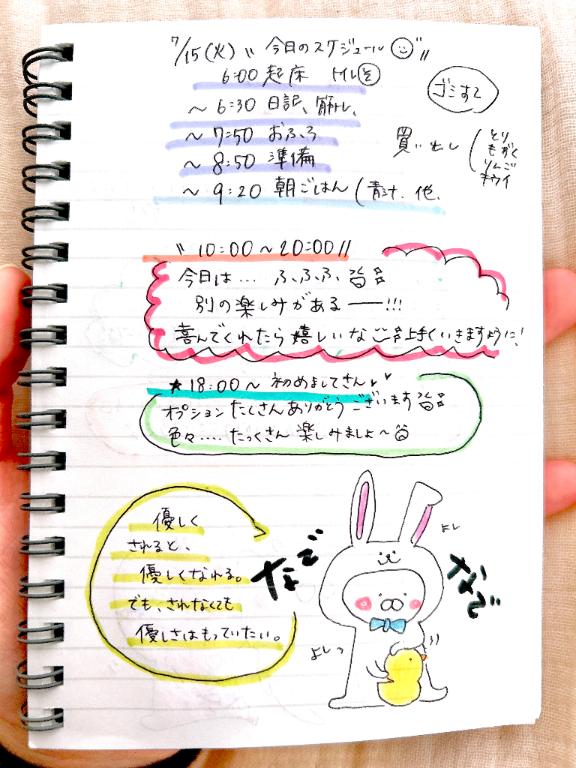 7/15(火) "今日のスケジュール"
6:00 起床 トイレ
ゴミすて
~ 6:30 日記、筋トレ、
~ 7:50 おふろ
~ 8:50 準備
~ 9:20 朝ごはん (青汁、他、
買い出し
とり
もずく
りんご
キウイ
"10:00~20:00"
今日は… ふふふふ
別の楽しみがあるーー!!!
喜んでくれたら嬉しいなご 上手くいきますように!
★18:00~ 初めましてさん♥♥
オプションたくさんありがとうございます
色々…..たっくさん楽しみましょ~
優しく
されると、
優しくなれる。
でも、されなくても
優しさはもっていたい。
なで
なで
よし
よしっ